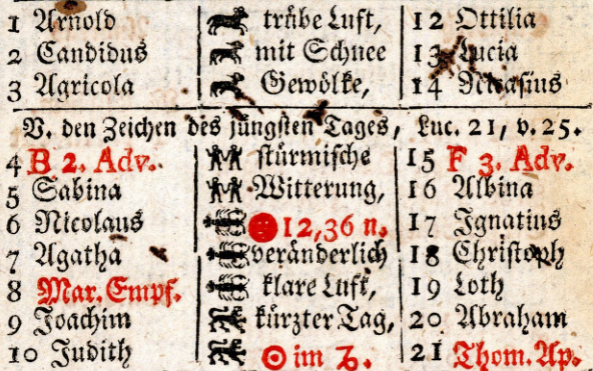 1 Arnold trübe Luft, 12 Ottilia
2 Candidus mit Schnee 13 Lucia
3 Agricola Gewölke, 14 Nicasius
V. den Zeichen des jüngsten Tages, Luc. 21, v. 25.
4 B 2. Adv. stürmische 15 F 3. Adv.
5 Sabina Witterung, 16 Albina
6 Nicolaus 12,36 n. 17 Ignatius
7 Agatha veränderlich 18 Christoph
8 Mar. Empf. klare Luft, 19 Loth
9 Joachim kürzter Tag, 20 Abraham
10 Judith ☉ im ♑. 21 Thom. Ap.